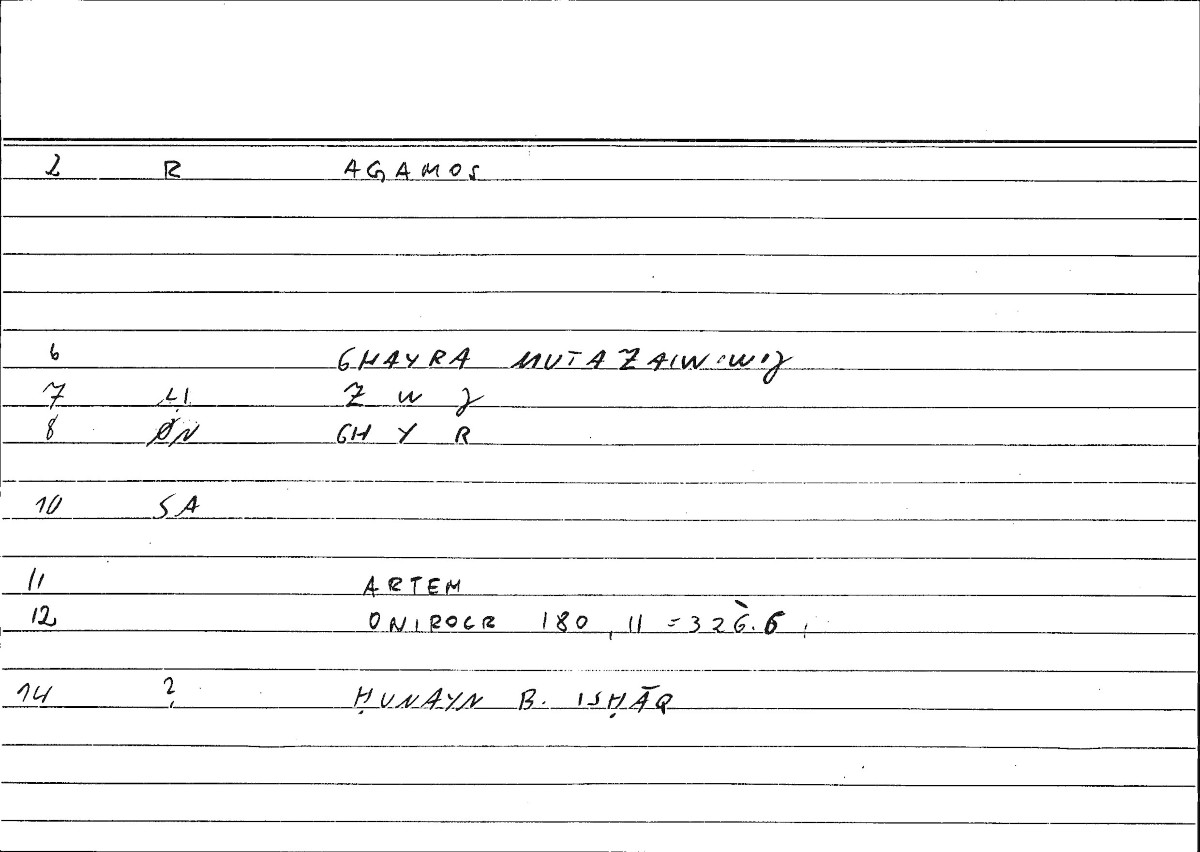 2 R AGAMOS
6 GHAYRA
7 LI Z W J
8 ØN GH Y R
10 SA
11 ARTEM
12 ONIROCR 180, 11 = 326.6
14 ? ḤUNAYN B. ISḤĀQ